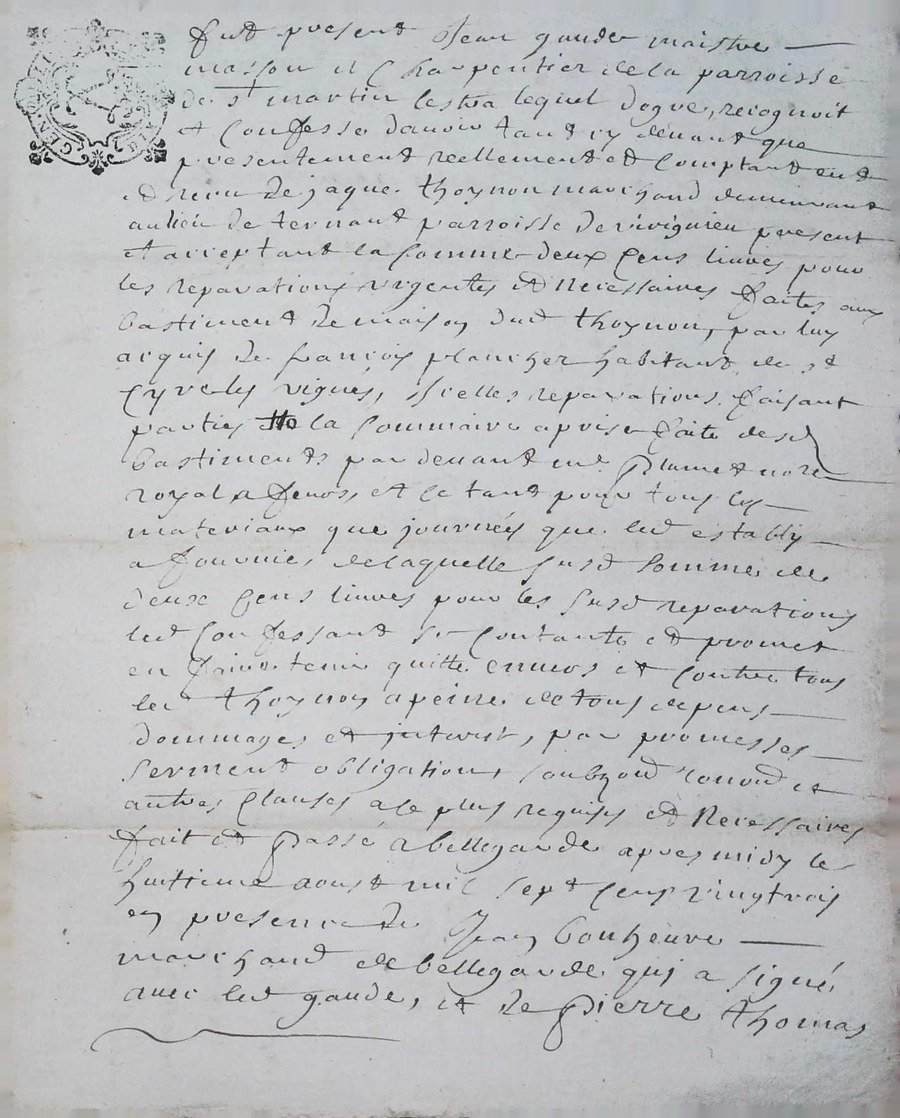 fut present Jean gaude maistre
masson et Charpentier de la parroisse
de st martin lestra lequel de gré, recognoit
et Confesse d'avoir tant cy devant que
presentement reellement et Comptant eu et
et receu de jaque thoynon marchand demeurant
au lieu de ternant parroisse de present
et acceptant la somme deux Cens livres pour
les reparations urgentes et Necessaires faites aux
bastiment de maison dud thoynon, par luy
acquis de françois plancher habitant de st
Cyre les vignes, icelles reparations faisant
parties de la sommaire a prise faite desd
bastiments par devant me plumet nore
royal a feurs, et ce tant pour tous les
materiaux que journées que led estably
a fournies de laquelle susd somme de
deux Cens livres pour les susd reparations
led Confessant se Contante et promet
en faire tenir quitte envers et contre tous
led thoynon a peine de tous depens
dommages et interest, par promesses
serment obligation, soubzon renon et
autres Clauses a ce plus requises et Necessaires
fait et passé a bellegarde apres midy le
huitieme aoust mil sept Cens vingt trois
en presence de Jean bonheure
marchand de bellegarde qui a signé
avec led gaude, et de pierre thomas